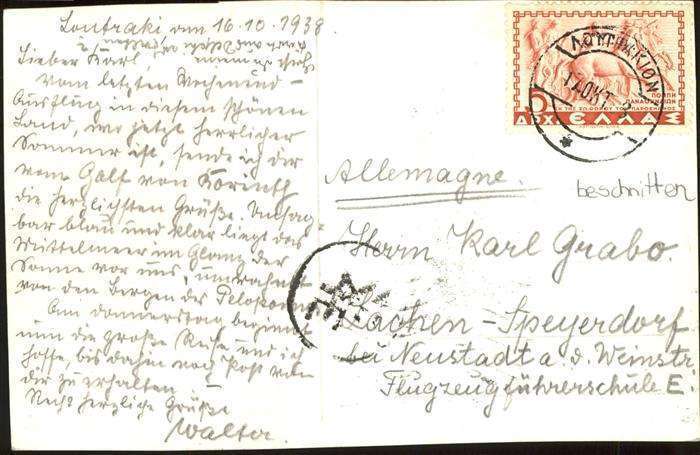 Loutraki, am 16.10.1938
Lieber Karl!
Vom letzten Wochenend-
Ausflug in diesem schönen
Land, wo jetzt herrlicher
Sommer ist, sende ich dir
vom Golf von Korinth
die herzlichsten Grüße. Unsag-
bar blau und klar liegt das
Mittelmeer im Glanz der
Sonne vor uns, umrahmt
von den Bergen des Peloponn.
Am Donnerstag beginnt
nun die große Reise und ich
hoffe, bis dahin noch Post von
dir zu erhalten.
Recht herzliche Grüße
Walter.
5
ΔΡΧ. ΕΛΛΑΣ
ΠΟΜΠΗ
ΠΑΝΑΘΗΝΑΙΩΝ
ΕΚ ΤΗΣ ΖΩΦΟΡΟΥ ΤΟΥ ΠΑΡΘΕΝΩΝΟΣ
ΛΟΥΤΡΑΚΙΟΝ
17.ΟΚΤ.3
beschnitten
Allemagne.
Herrn Karl Grabo.
Lachen-Speyerdorf
bei Neustadt a. d. Weinstr.
Flugzeugführerschule E.